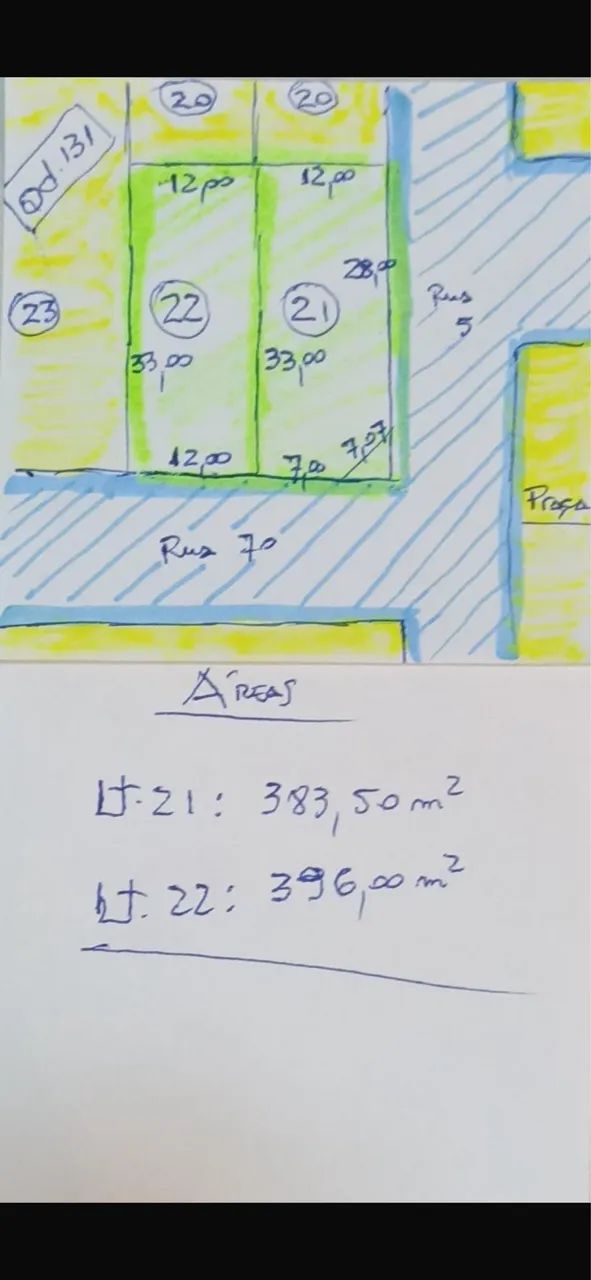 20
20
Qd. 131
12,00
12,00
28,00
Rua
5
23
22
21
33,00
33,00
7,07
12,00
7,00
Praça
Rua 70
ÁREAS
Lt. 21: 383,50 m²
Lt. 22: 396,00 m²